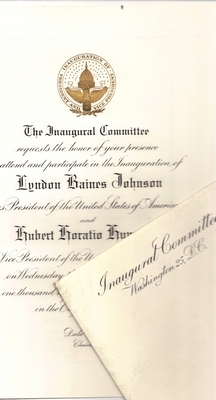 The Inaugural Committee
requests the honor of your presence
attend and participate in the Inauguration of
Lyndon Baines Johnson
as President of the United States of America
and
Hubert Horatio
Vice President of the
on Wednesday
one thousand
in the
Inaugural Committee
Washington 25, D.C.